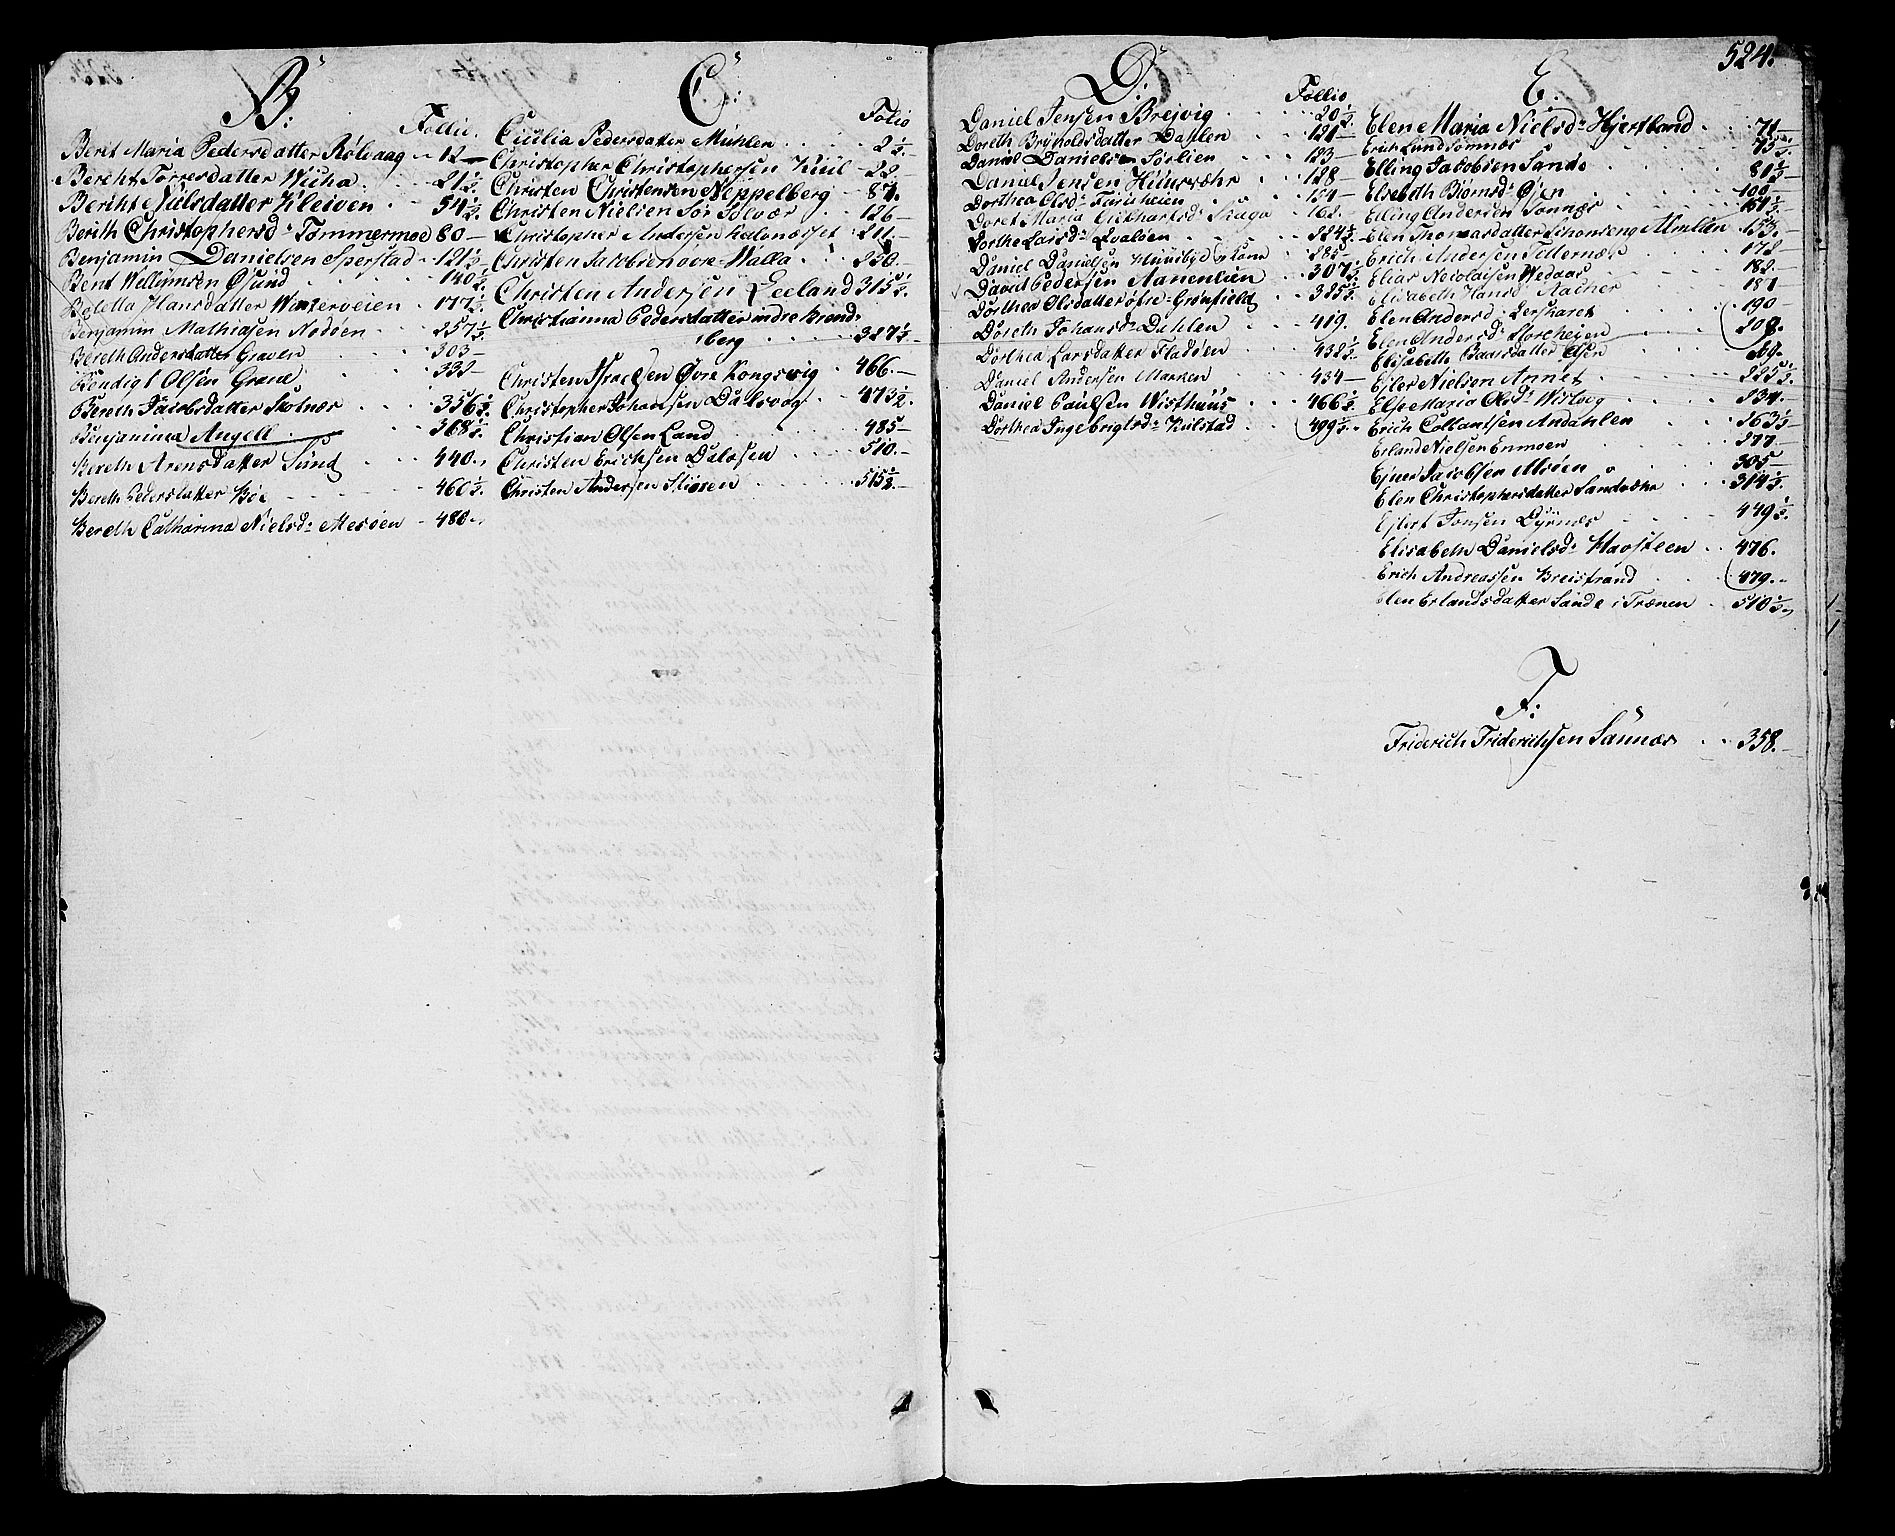 B:
Follio.
Beret Maria Pedersdatter Rølvaag - 12 -
Bereht Torresdatter Wicha . . 21½
Beriht Nielsdatter Kleiven . . 54½
Bereth Christophersd: Tømmermoe 80 -
Benjamin Danielsen Sperstad - 121½
Bent Wellumsen Øsund . . 140½
Beletta Hansdatter Winterveien . 177½.
Benjamin Mathiasen Nødøen . . 257½
Bereth Andersdatter Graven . . 303 -
Bendigt Olsen Grane . . 332 -
Bereth Jacobsdatter Skotnæs . . 356½.
Benjamina Angell . . 368½.
Bereth Arensdatter Sund . . 440.
Bereth Pedersdatter Böe - - - 460½.
Bereth Catharina Nielsd: Mesøen - 480.
C:
Folio
Cicilia Pedersdatter Mühlen . . . 2½
Christopher Christophersen Kuul - 22.
Christen Christensen Neppelberg - 87.
Christen Nielsen Sør Solvær . . 126 -
Christopher Andersen 211. -
Christen Jacobsen Walla . . 250.
Christen Andersen Leeland 315½.
Christianna Pedersdatter indre Brend:
berg . . . . 327½
Christen Israelsen Øvre Kongsvig . 466. -
Christopher Johansen Dalsvog . . 473½
Christian Olsen Land . . 485 -
Christen Erichsen Dalosen . . 510. -
Christen Andersen Stien . . . 515½. -
524.
D:
Follio
Daniel Jensen Brejvig . . 20½.
Doreth Brynholdsdatter Dahlen . 121 -
Daniel Daniels Sørlien . . . 123 -
Daniel Jensen . . 128 -
Dorthea Olsd: . . 134 -
Doret Maria Giethartsd: Skaga . 162. -
Dorthe Larsd: . . 224½
Daniel Danielsen . . 285 -
David Pedersen Aanenlien . . 307½
Dorthea Olsdatter øfre Grønfield . . 325½
Doreth Johansd: Dahlen . . 419.
Dorthea Larsdatter Fladøen . . 432½
Daniel Andersen Marken . . 454 -
Daniel Paulsen Wisthuus . . 466½
Dorthea Ingebrigtsd: Kulstad . . (499½. -
E:
Elen Maria Nielsd: Hjertland . . 71 -
Erich Lund Sømnæs . . 75½
Elling Jacobsen Sande . . 81½
Elsebeth Biørnsd: Øien . . 100 -
Elling Andersen Sønnæs . . 151½
Elen Thomasdatter 173. -
Erich Andersen . . 178
Elias Nicolaisen Wedaas . . 182. -
Elisabeth Hansd: Aacher . . 187
Elen Andersd: . . 190 -
Elen Andersd: Storhejen . . 208.
Elisabeth Baarsdatter Olsen . .
Ejler Nielsen Annet . . 225½
Else Maria Olsd: Wistvog . . 237. -
Erich Collantsen Andahlen . . 263½
Erland Nielsen Enmoen . . 277 -
Ejner Jacobsen . . 305 -
Elen Christophersdatter Sandvæhr . . 314½.
Ejlert Jonsen Dyrnæs . . 449½.
Elisabeth Danielsd: Havsteen . . 476.
Erich Andreassen Breistrand . . (479. -
Elen Erlandsdatter Sande i Trænen . 510½
F:
Friderich Friderichsen Sannæs . . 358. -